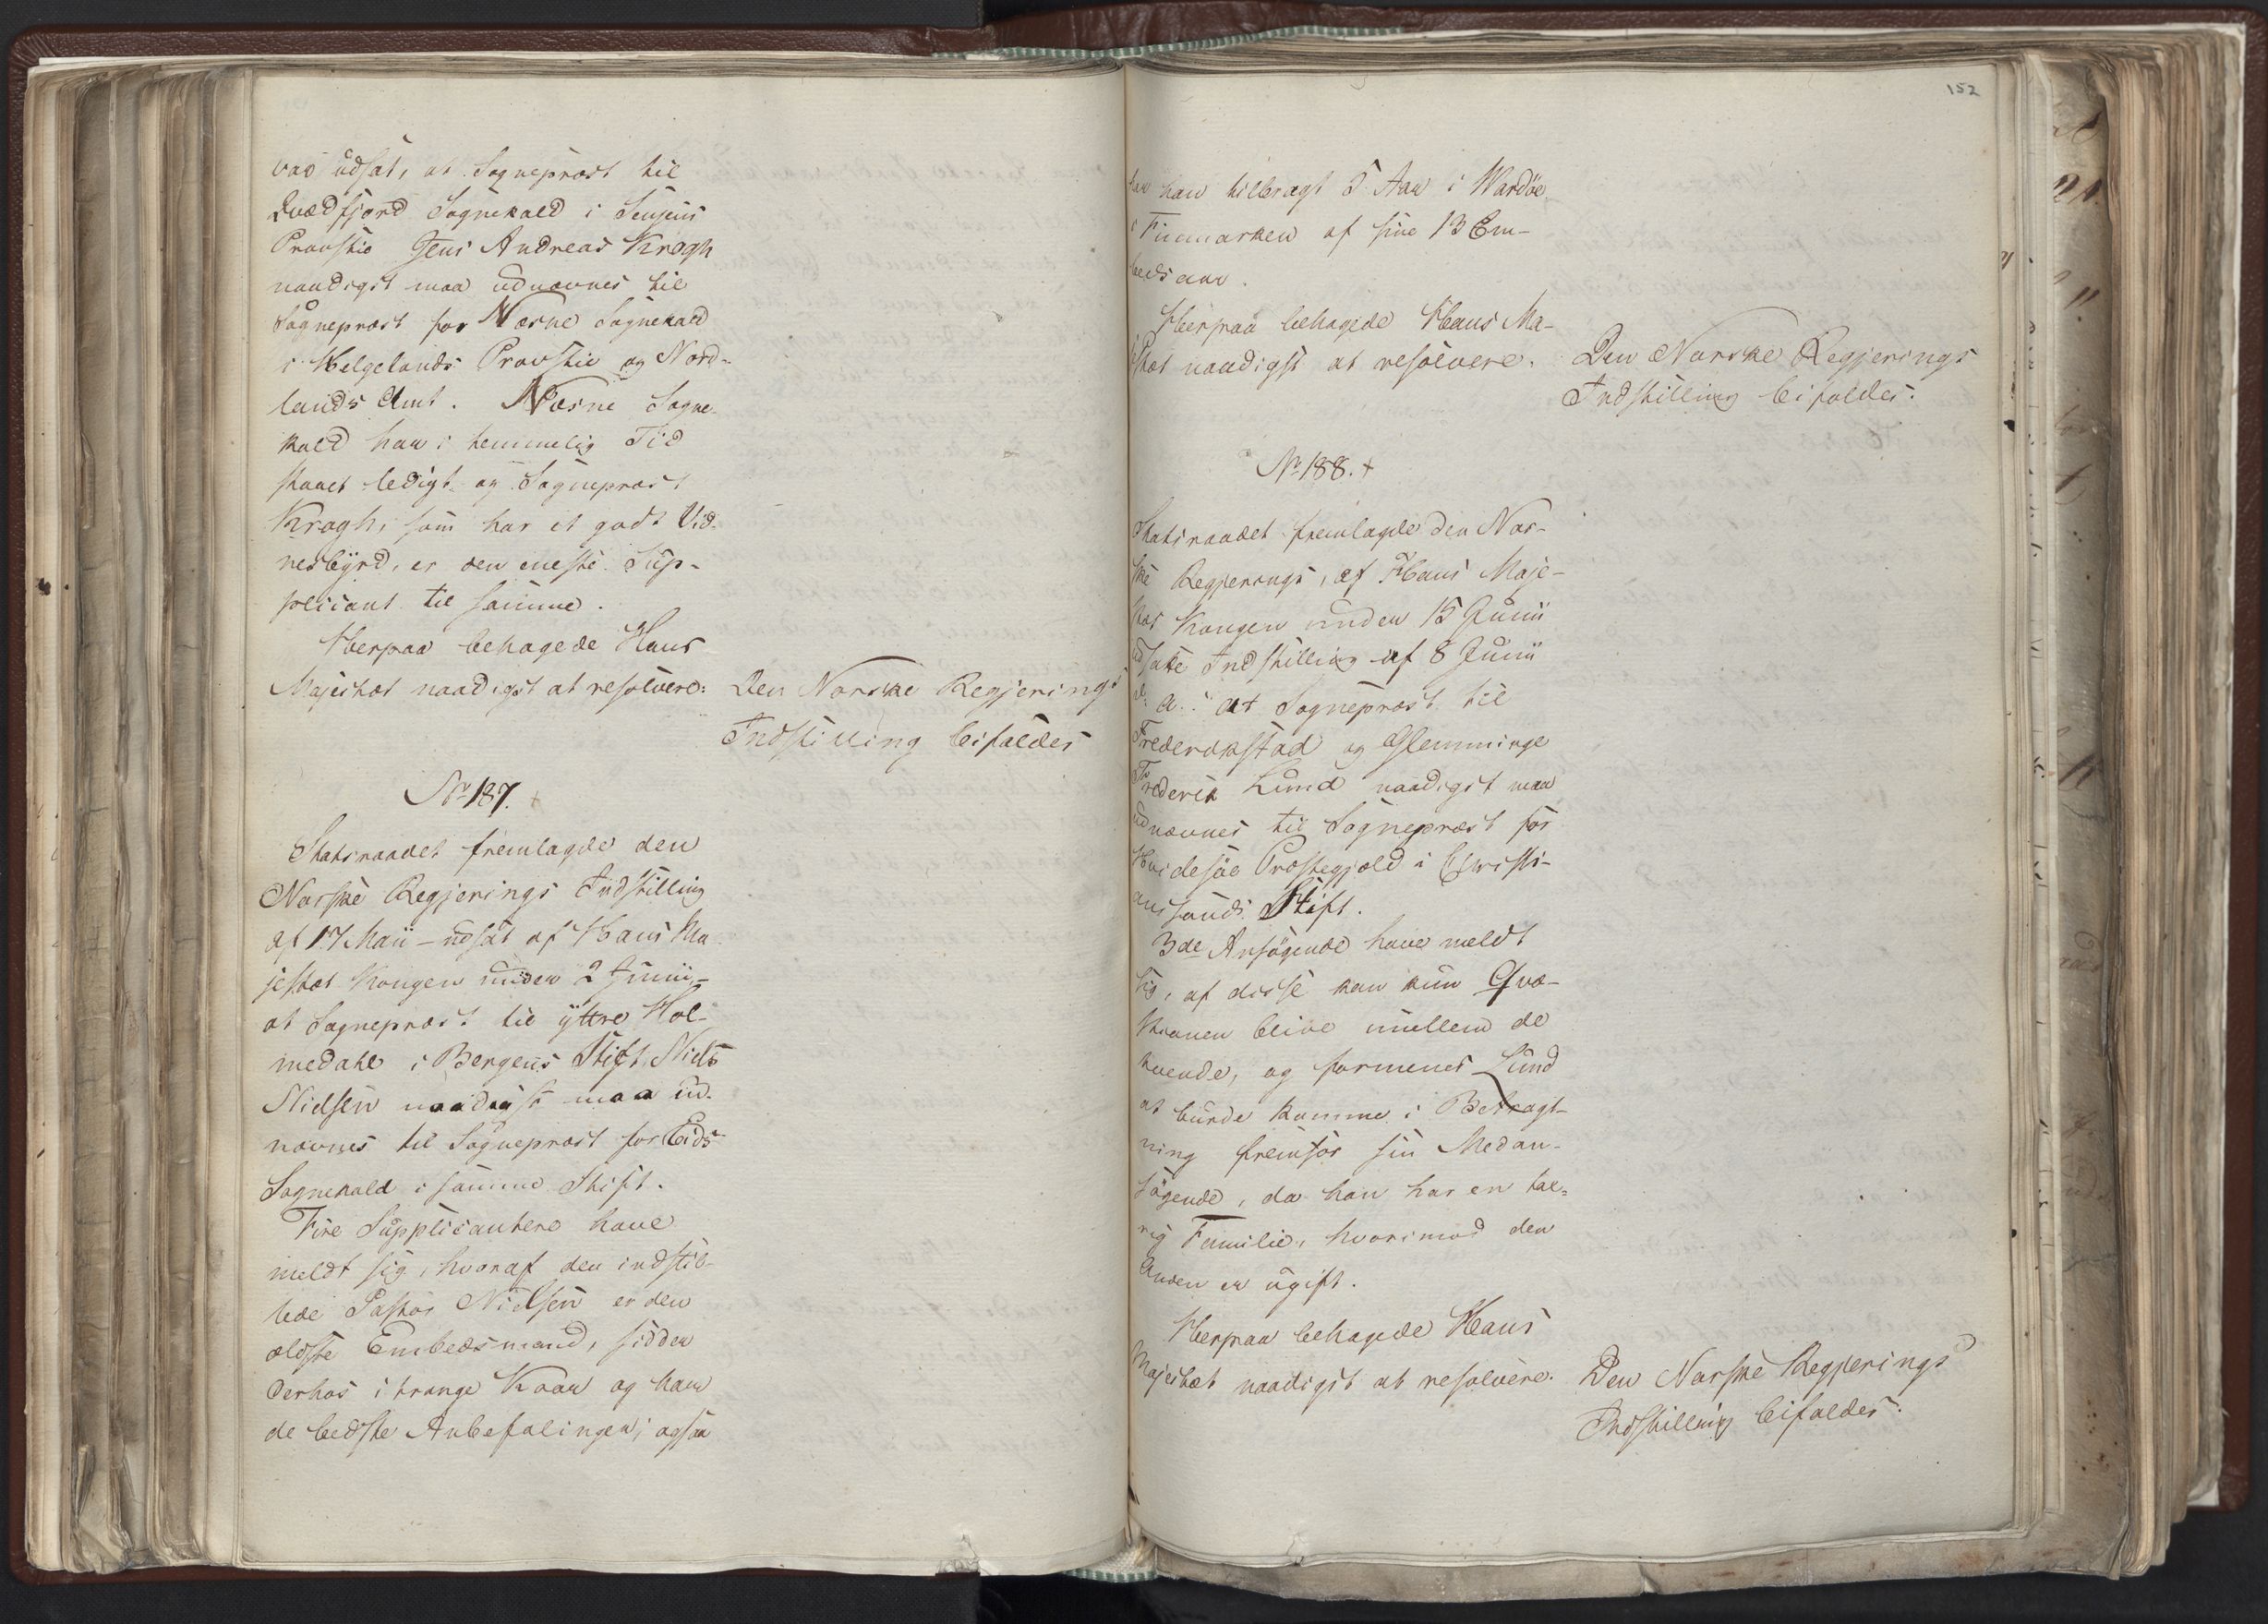 var udsat, at Sognepræst til
Qvædfjord Sognekald i Senjens
Provstie Jens Andreas Krogh
naadigst maa udnævnes til
Sognepræst for Næsne Sognekald
i Helgelands Provstie og Nord-
lands Amt. Næsne Sogne-
kald har i temmelig Tid
staaet ledigt og Sognepræst
Krogh, som har et godt Vid-
nesbyrd, er den eneste Sup-
plicant til samme.
Herpaa behagede Hans
Majestæt naadigst at resolvere:
Den Norske Regjerings
Indstilling bifaldes
No 187. +
Statsraadet fremlagde den
Norske Regjerings Indstilling
af 17 Maii - udsat af Hans Ma
jestæt Kongen under 2 Junii -
at Sognepræst til yttre Hol-
medahl i Bergens Stift, Niels
Nielsen naadigst maa ud-
nævnes til Sognepræst for Eids
Sognekald i samme Stift.
Fire Supplicantere have
meldt sig, hvoraf den indstil-
lede Pastor Nielsen er den
ældste Embedsmand, sidder
derhos i trange Kaar og har
de bedste Anbefalinger; ogsaa
152
har han tilbragt 5 Aar i Wardøe
i Finmarken af sine 13 Em-
bedsaar.
Herpaa behagede Hans Ma-
jestæt naadigst at resolvere.
Den Norske Regjerings
Indstilling bifaldes.
No 188. +
Statsraadet fremlagde den Nor-
ske Regjerings, af Hans Maje-
stæt Kongen under 15 Junii
udsatte Indstilling af 8 Junii
d. a.: at Sognepræst til
Frederikstad og Glemminge
Frederik Lund naadigst maa
udnævnes til Sognepræst for
Hvidesøe Præstegjæld i Christi-
ansands Stift.
3de Ansøgende have meldt
sig, af disse kan kun Qvæ-
stionen blive imellem de
tvende, og formenes Lund
at burde komme i Betragt-
ning fremfor sin Medan-
søgende, da han har en tal-
rig Familie, hvorimod den
Anden er ugift.
Herpaa behagede Hans
Majestæt naadigst at resolvere.
Den Norske Regjerings
Indstilling bifaldes.